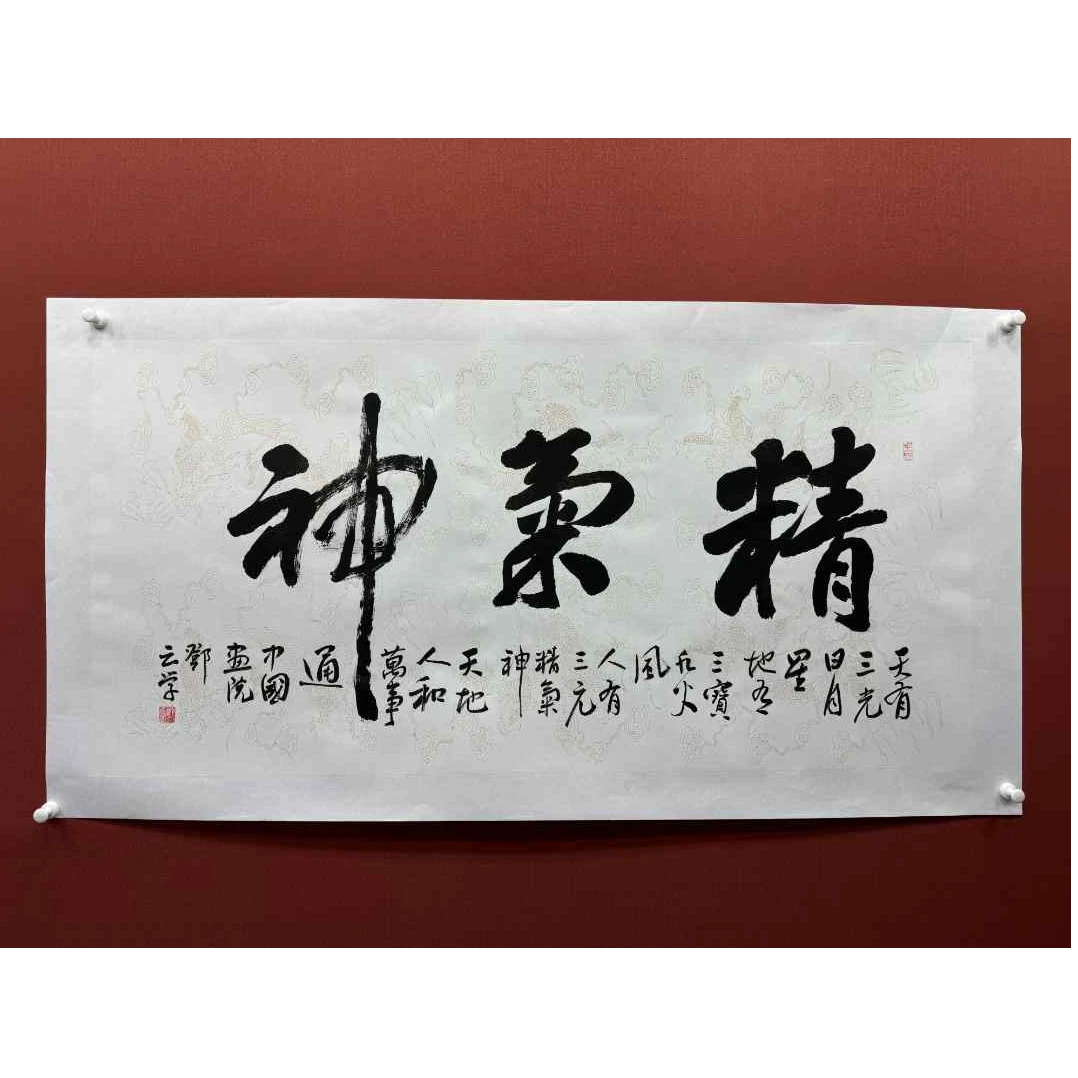 精氣神
天有
三光
日月
星
地有
三寶
水火
風
人有
三元
精氣
神
天地
人和
萬事
通
中國
画院
鄧
云学